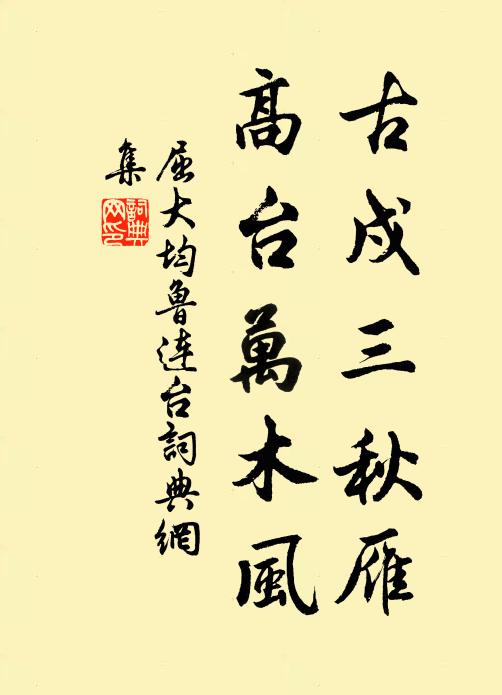 古戍三秋雁
高台萬木風
屈大均魯连台詞典網
集
詞典
网印